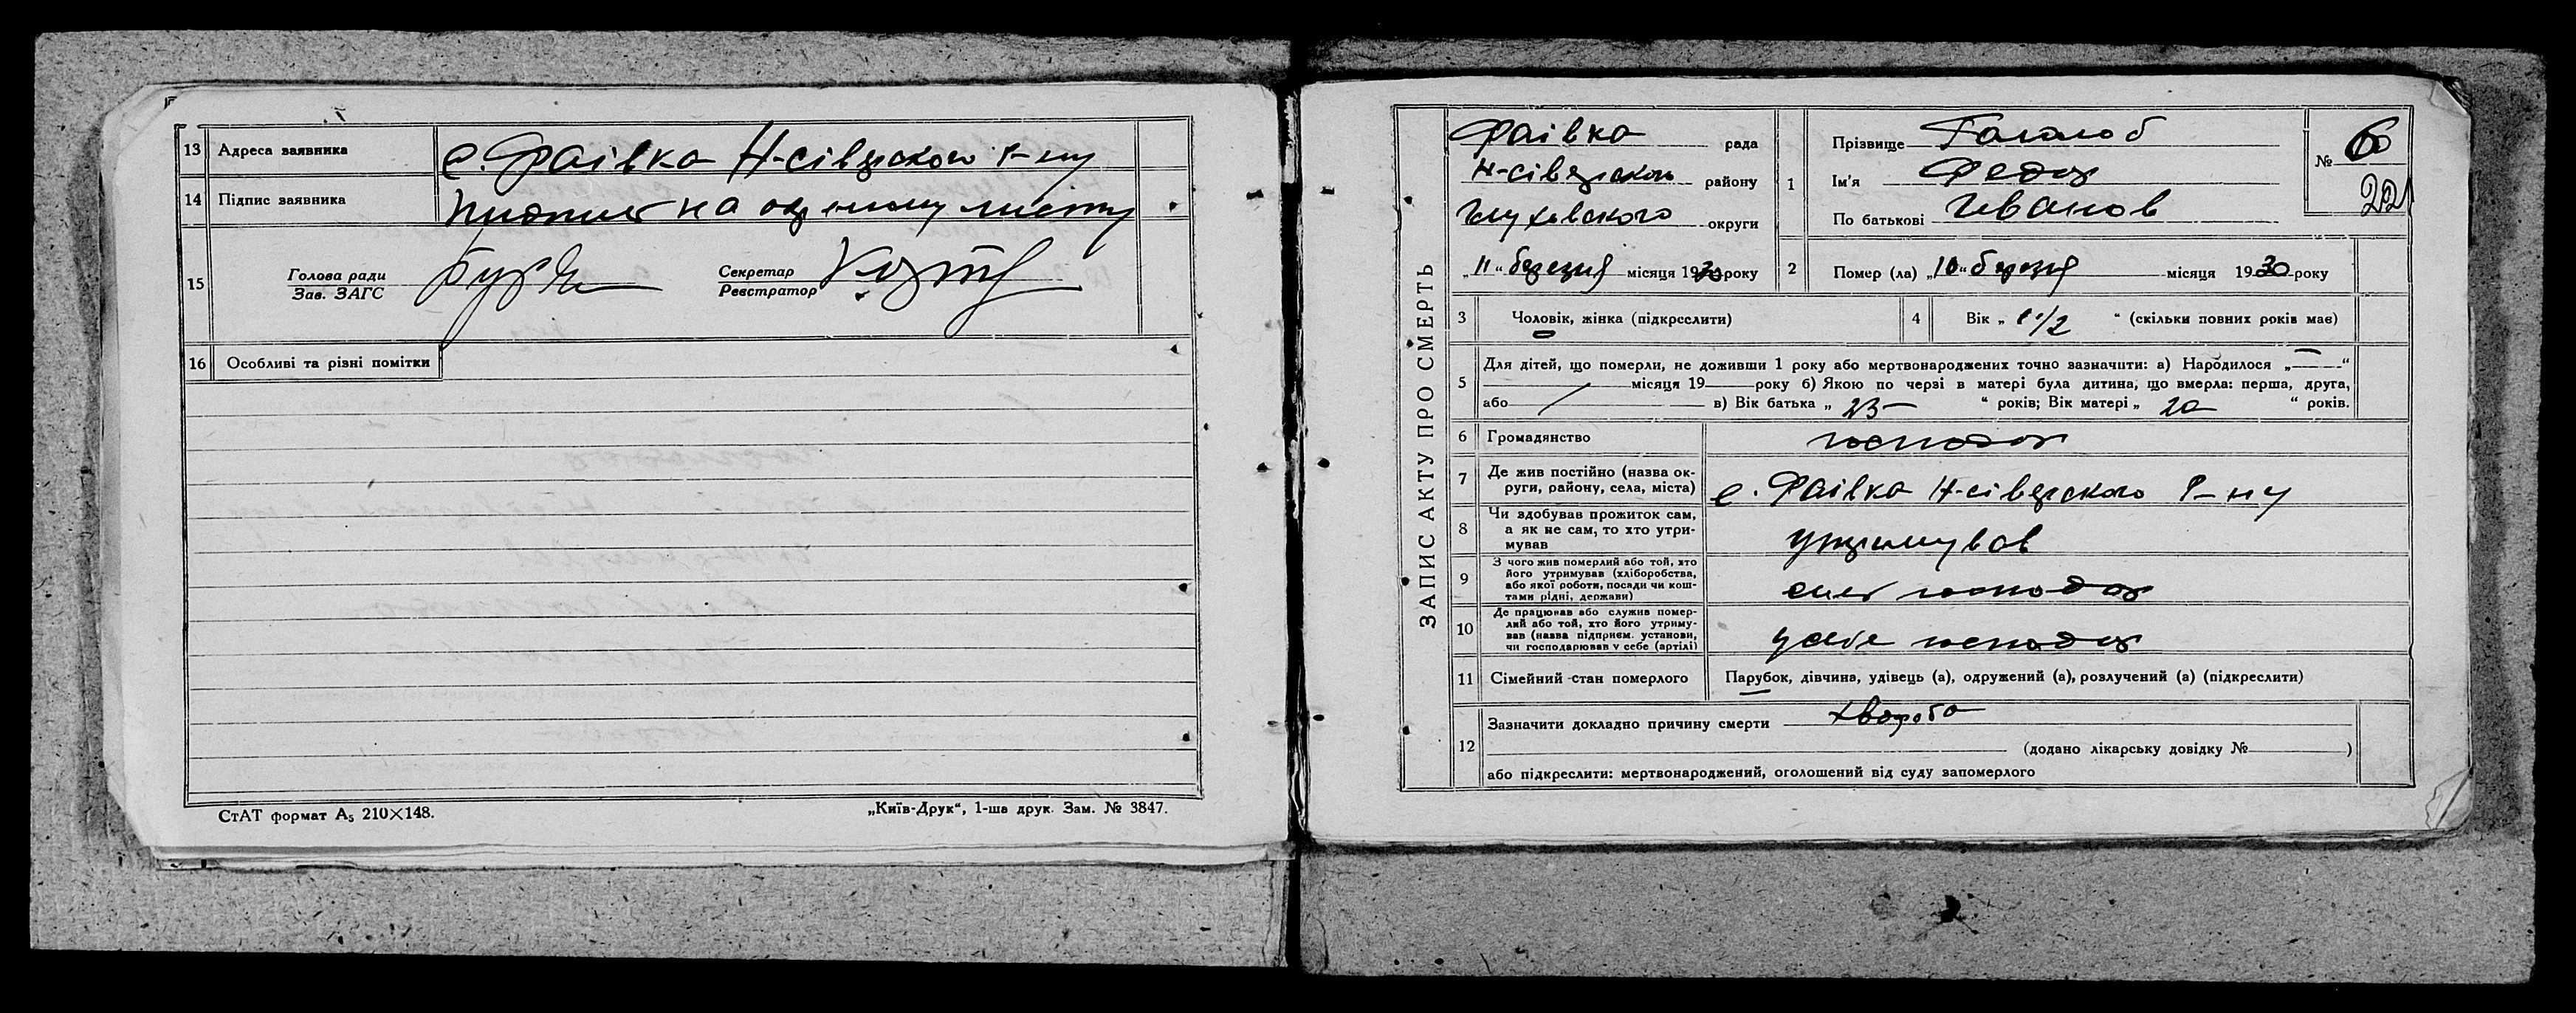 13 Адреса заявника с. Фаівка Н-сіверського р-ну
14 Підпис заявника на окремому листку
15 Голова ради
Зав. ЗАГС
Секретар
Реєстратор
16 Особливі та різні помітки
СтАТ формат А₅ 210×148.
„Київ-Друк“, 1-ша друк. Зам. № 3847.
ЗАПИС АКТУ ПРО СМЕРТЬ
Фаівка рада
Н-сіверського району
Глухівського округи
„11“ березня місяця 1930 року
1 Прізвище
Ім'я Федор
По батькові Іванов
№ 6
2 Помер (ла) „10“ березня місяця 1930 року
3 Чоловік, жінка (підкреслити)
4 Вік „ 1 1/2 “ (скільки повних років мав)
5 Для дітей, що померли, не доживши 1 року або мертвонароджених точно зазначити: а) Народилося „—“
місяця 19 року б) Якою по черзі в матері була дитина, що вмерла: перша, друга,
або в) Вік батька „ 23 “ років; Вік матері „ 20 “ років.
6 Громадянство господар
7 Де жив постійно (назва ок-
руги, району, села, міста) с. Фаівка Н-сіверського р-ну
8 Чи здобував прожиток сам,
а як не сам, то хто утри-
мував утримував
9 З чого жив померлий або той, хто
його утримував (хліборобства,
або якої роботи, посади чи кош-
тами рідні, держави) господар
10 Де працював або служив помер-
лий або той, хто його утриму-
вав (назва підприєм. установи,
чи господарював у себе (артілі) у себе господар
11 Сімейний стан померлого Парубок, дівчина, удівець (а), одружений (а), розлучений (а) (підкреслити)
12 Зазначити докладно причину смерти хвороба
(додано лікарську довідку № )
або підкреслити: мертвонароджений, оголошений від суду запомерлого